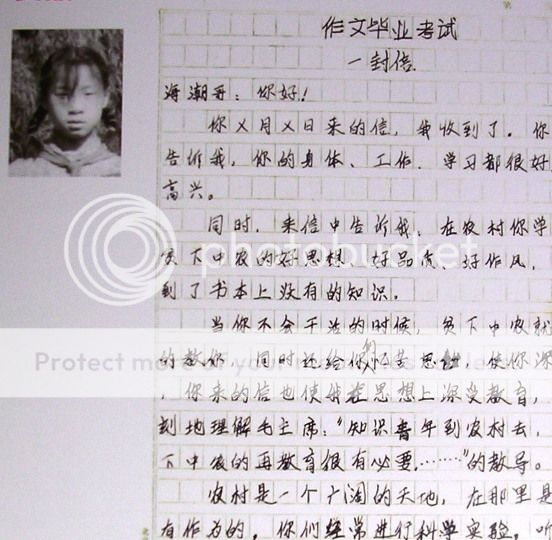 作文毕业考试
一封信.
海潮哥：你好！
你X月X日来的信，我收到了。你
告诉我，你的身体、工作、学习都很好
高兴。
同时，来信中告诉我，在农村你学
贫下中农的好思想、好品质、好作风，
photobucket
到了书本上没有的知识。
当你不会干活的时候，贫下中农就
的教你，同时还给你们忆苦思甜，使你深
Protect of your for
，你来的信也使我在思想上深受教育，
刻地理解毛主席：“知识青年到农村去，
下中农的再教育很有必要.……”的教导。
农村是一个广阔的天地，在那里是
有作为的，你们经常进行科学实验，听